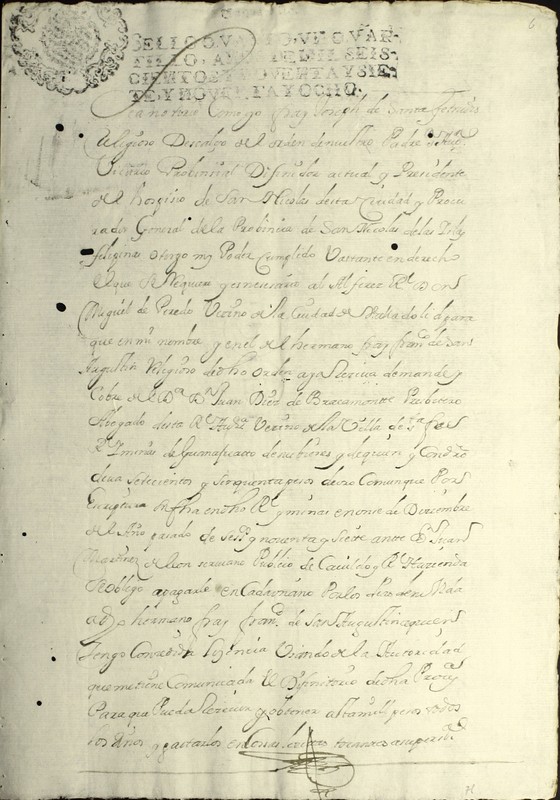 6
SELLO QVARTO, VN QVAR-
TILLO, AÑOS DE MIL SEIS-
CIENTOS Y NOVENTA Y SIE-
TE, Y NOVENTA Y OCHO.
notorio Como yo fray Joseph de Santa Gertrudis
Religioso Descalço del orden de nuestro Padre S. Aug.n
Vicario Provincial Difinidor actual y Presidente
del hospicio de San Nicolas desta Ciudad y Procu
rador General de la Provincia de San Nicolas de las Islas
filipinas otorgo my Poder Cumplido Vastante en derecho
el que se Requiere y es nesesario al Alferes R.l Don
Miguel de Peredo Vecino de la Ciudad de Valladolid para
que en mi nombre y en el del hermano fray fran.co de San
Augustin Religioso de dho Orden aya Reciva demande y
Cobre del D.r D.n Juan Diez de Bracamonte Presbitero
Abogado desta R.l Aud.a Vecino de la Villa de S.ta fee
R.l y minas de Guanajuato de sus bienes y de quien y Con dro
deva setecientos y sinquenta pesos de oro Comun que Por
Escriptura en fha en dho R.l y minas en onse de Diziembre
del Año pasado de seis.s y noventa y Siete ante D. Juan
Martinez de Leon escrivano Publico de Cavildo y R.l Hazienda
se Obligo a pagarle en Cada un año Por los de su Vida
a dho hermano fray fran.co de San Augustin a quien
tengo Consedida lisencia Usando de la Autoridad
que me tiene Comunicada el Difinitorio de dha Prov.a
Para que Pueda Recivir y obtener pesos todos
los Años y gastarlos en Cosas licitas tocantes a su